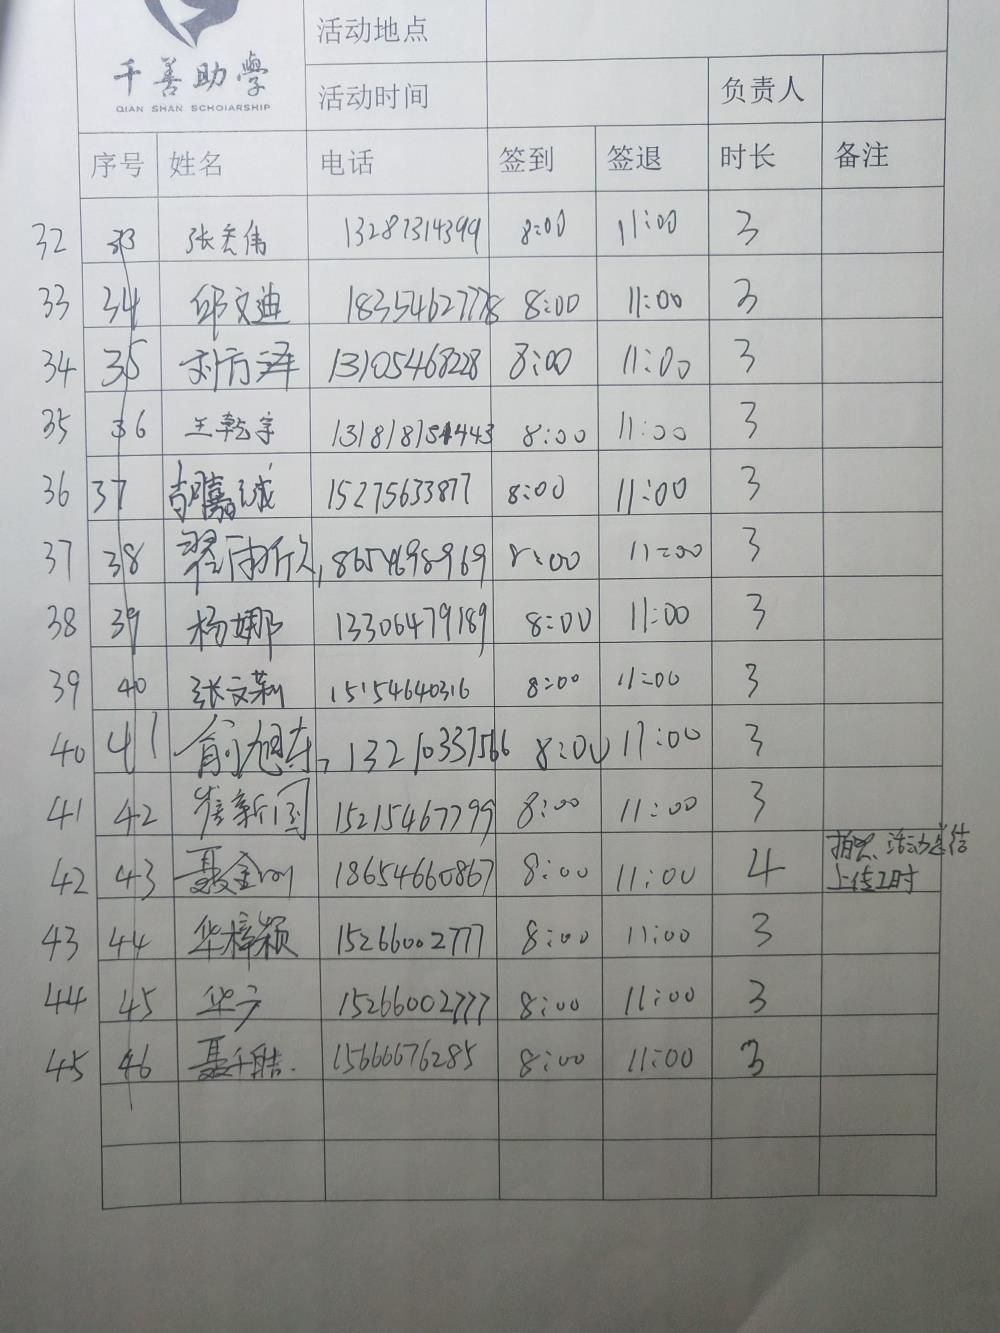 千善助學
QIAN SHAN SCHOIARSHIP
活动地点
活动时间 负责人
序号 姓名 电话 签到 签退 时长 备注
32 33 张彦伟 13287314399 8:00 11:00 3
33 34 邱文迪 18354627778 8:00 11:00 3
34 35 刘方泽 13105468228 8:00 11:00 3
35 36 王乾宇 8:00 11:00 3
36 37 15275633877 8:00 11:00 3
37 38 翟雨欣 18654698969 8:00 11:00 3
38 39 杨娜 13306479189 8:00 11:00 3
39 40 张文莉 15154640316 8:00 11:00 3
40 41 俞旭东 13210337566 8:00 11:00 3
41 42 崔新国 15215467799 8:00 11:00 3
42 43 聂金 18654660867 8:00 11:00 4 拍照、活动总结
上传工时
43 44 华梓颖 15266002777 8:00 11:00 3
44 45 华 15266002777 8:00 11:00 3
45 46 聂千皓 15666676285 8:00 11:00 3